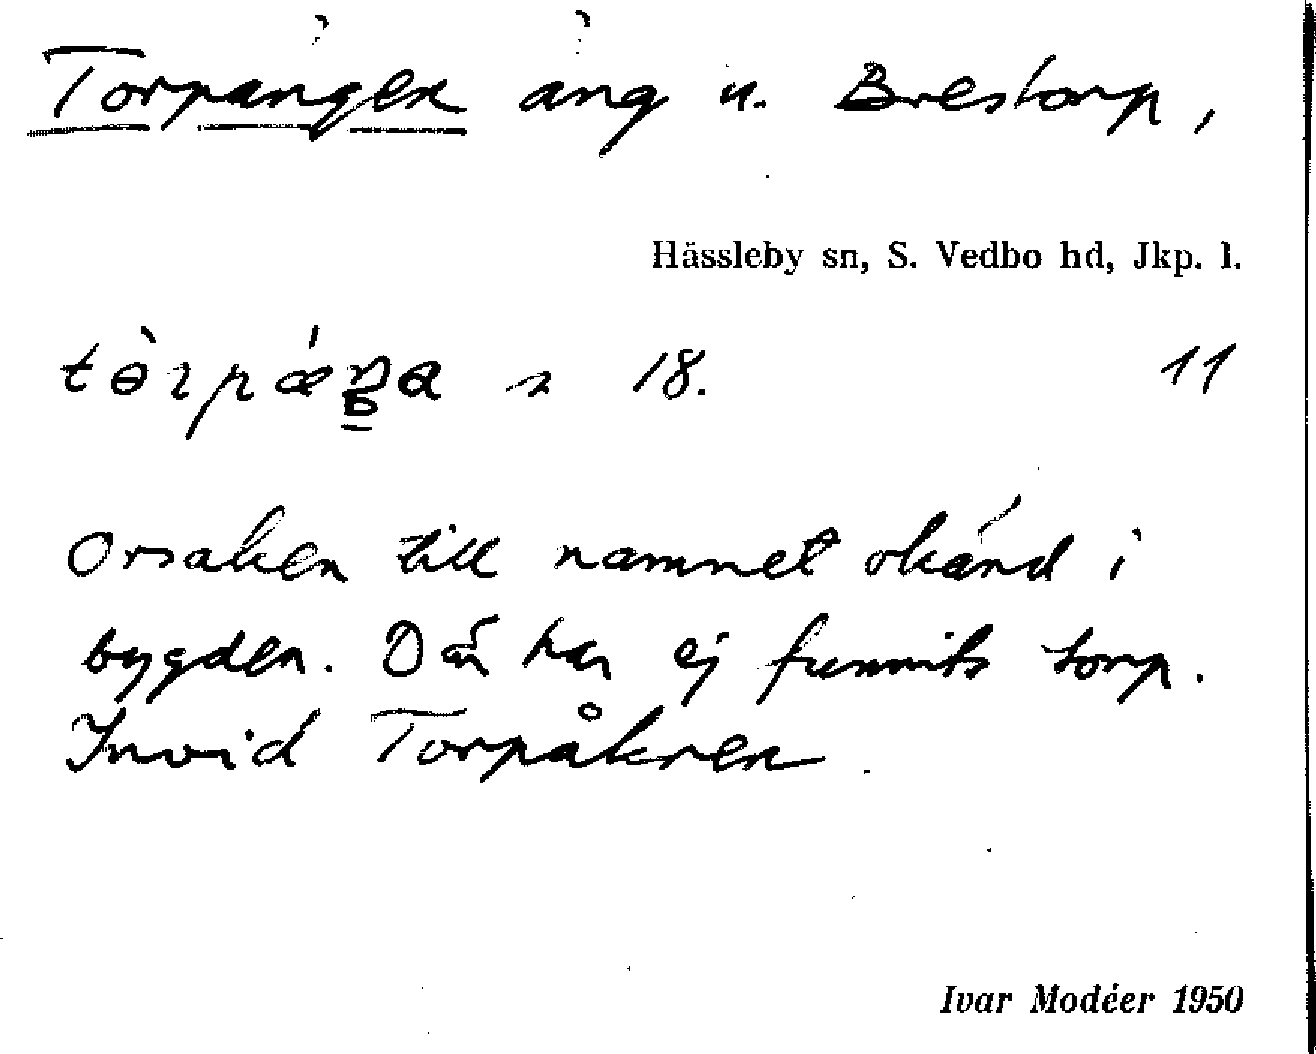 Torpängen äng u. Brestorp,
Hässleby sn, S. Vedbo hd, Jkp. l.
18. 11
Orsaken till namnet okänd i
bygden. Där har ej funnits torp.
Invid Torpåkren.
Ivar Modéer 1950